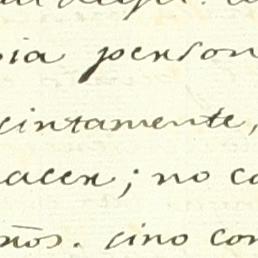 pia person
cintamente,
acer; no co
ños. sino con